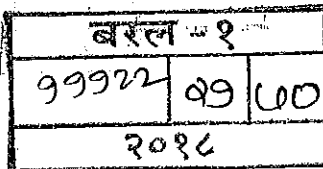 बरल - १
११९२२ २१ ७०
२०१८